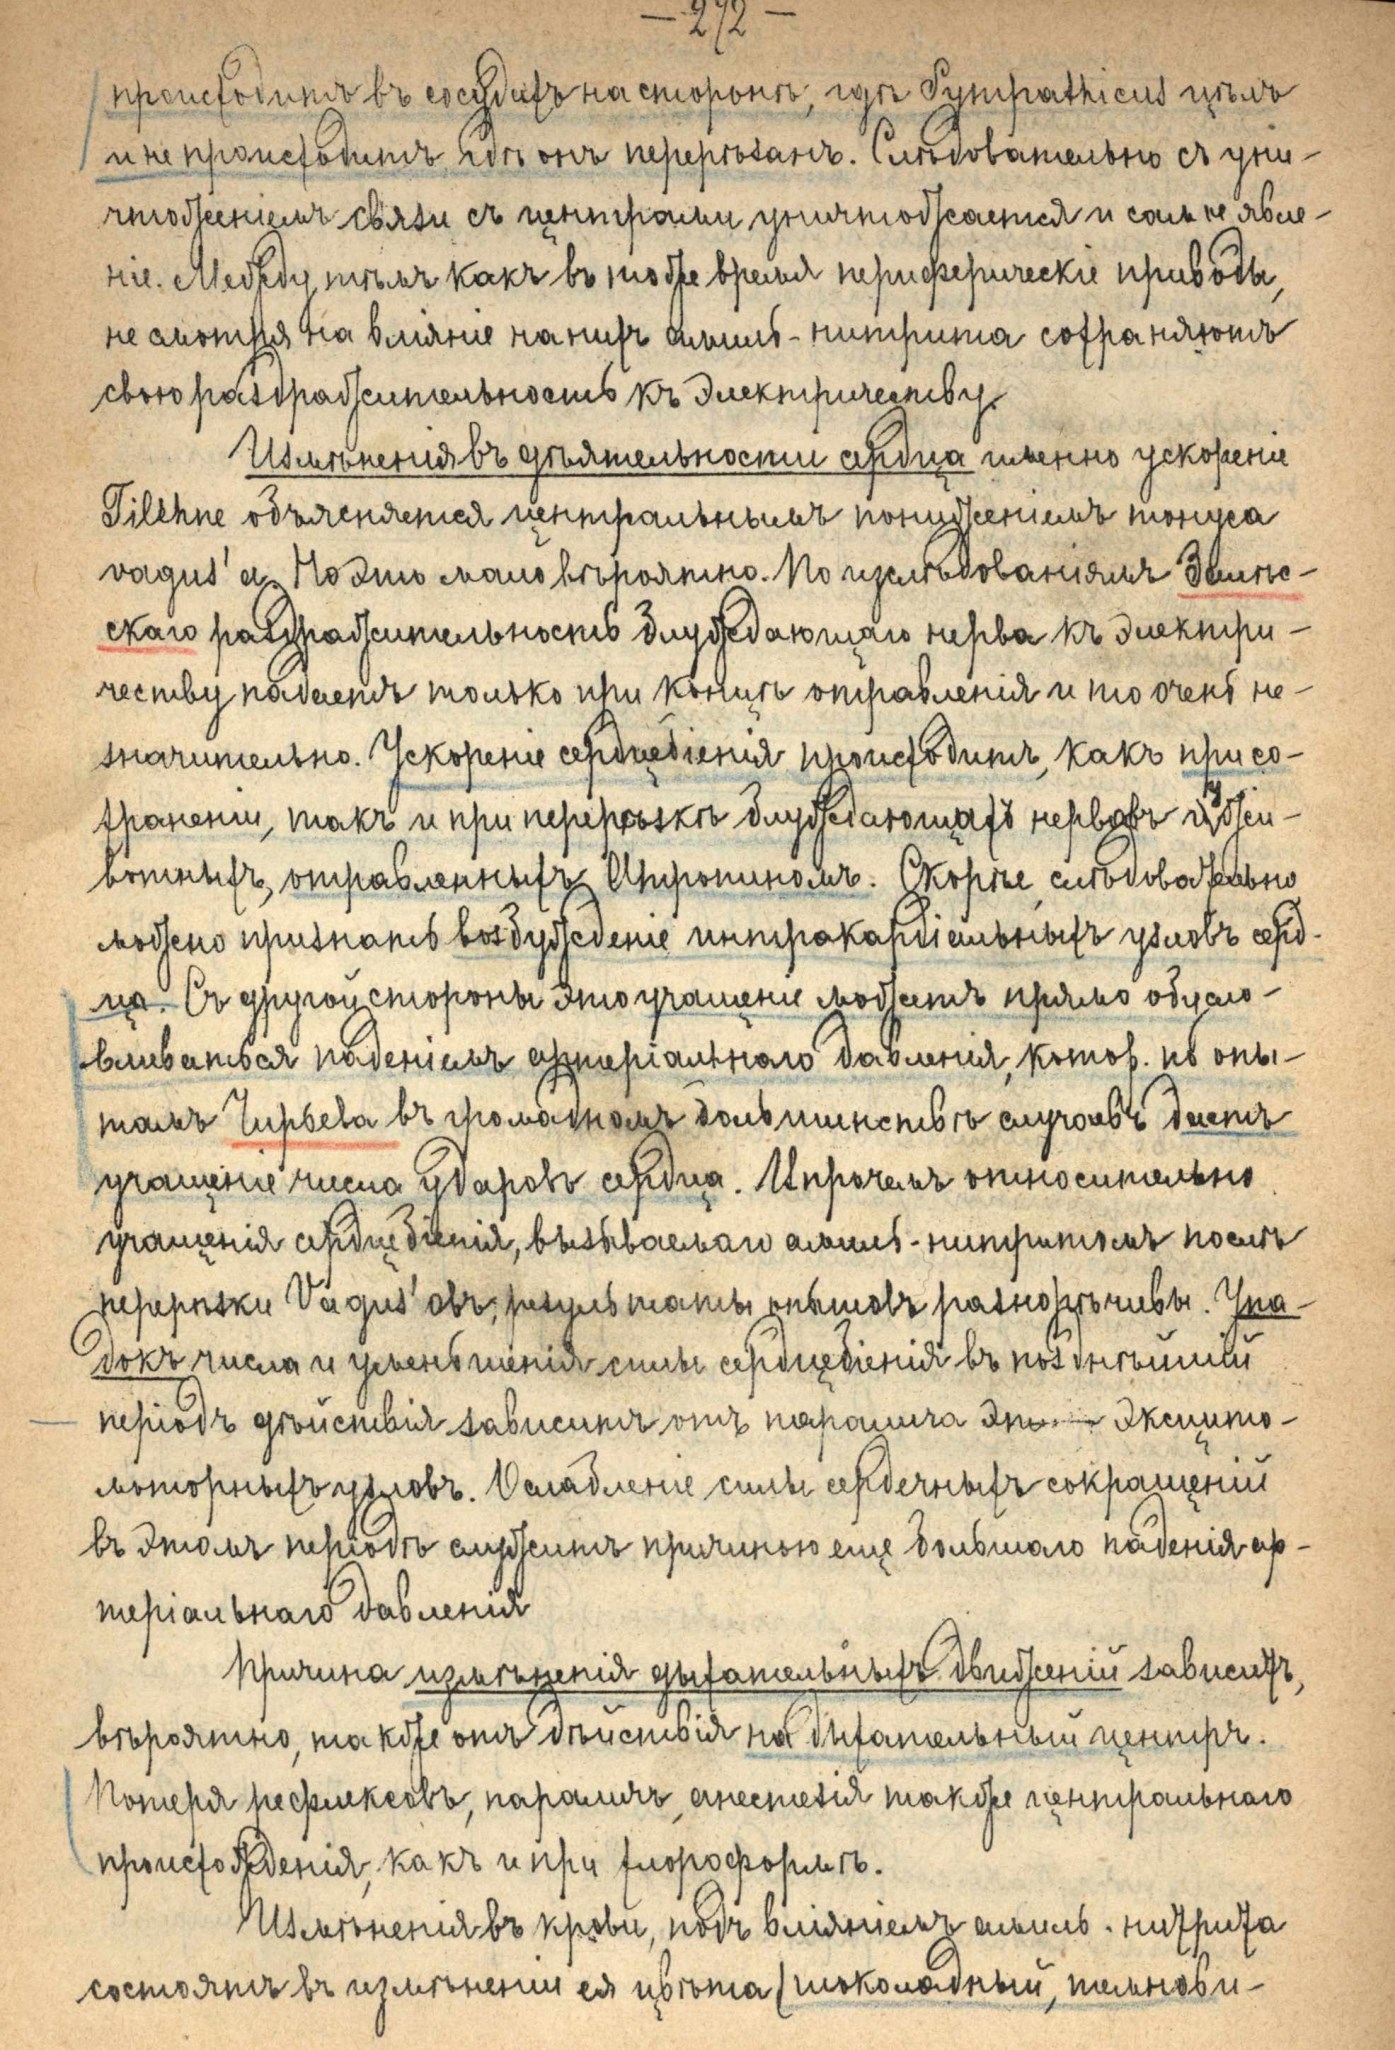 — 272 —
происходитъ въ сосудахъ на сторонѣ, гдѣ Sympathicus цѣлъ
и не происходитъ, гдѣ онъ перерѣзанъ. Слѣдовательно съ уни-
чтоженіемъ связи съ центрами уничтожается и самое явле-
ніе. Между тѣмъ какъ въ тоже время периферическіе приводы,
не смотря на вліяніе на нихъ амилъ-нитрита сохраняютъ
свою раздражительность къ электричеству.
Измѣненія въ дѣятельности сердца именно ускореніе
Filehne объясняется центральнымъ пониженіемъ тонуса
vagus'а. Но это мало вѣроятно. По изслѣдованіямъ
скаго раздражительность блуждающаго нерва къ электри-
честву падаетъ только при концѣ отравленія и то очень не-
значительно. Ускореніе сердцебіенія происходитъ, какъ при со-
храненіи, такъ и при перерѣзкѣ блуждающихъ нервовъ и у жи-
вотныхъ, отравленныхъ Атропиномъ. Скорѣе, слѣдовательно
можно признать возбужденіе интракардіальныхъ узловъ серд-
ца. Съ другой стороны это учащеніе можетъ прямо обусло-
вливаться паденіемъ артеріальнаго давленія, котор. по опы-
тамъ Чирьева въ громадномъ большинствѣ случаевъ даетъ
учащеніе числа ударовъ сердца. Впрочемъ относительно
учащенія сердцебіенія, вызываемаго амилъ-нитритомъ послѣ
перерѣзки Vagus'овъ, результаты опытовъ разнорѣчивы. Упа-
докъ числа и уменьшенія силы сердцебіенія въ позднѣйшій
періодъ дѣйствія зависитъ отъ паралича эксцито-
моторныхъ узловъ. Ослабленіе силы сердечныхъ сокращеній
въ этомъ періодѣ служитъ причиною еще большаго паденія ар-
теріальнаго давленія
Причина измѣненія дыхательныхъ движеній зависитъ,
вѣроятно, также отъ дѣйствія на дыхательный центръ.
Потеря рефлексовъ, параличъ, анестезія также центральнаго
происхожденія, какъ и при хлороформѣ.
Измѣненія въ крови, подъ вліяніемъ амилъ-нитрита
состоятъ въ измѣненіи ея цвѣта (шоколадный, темнови-